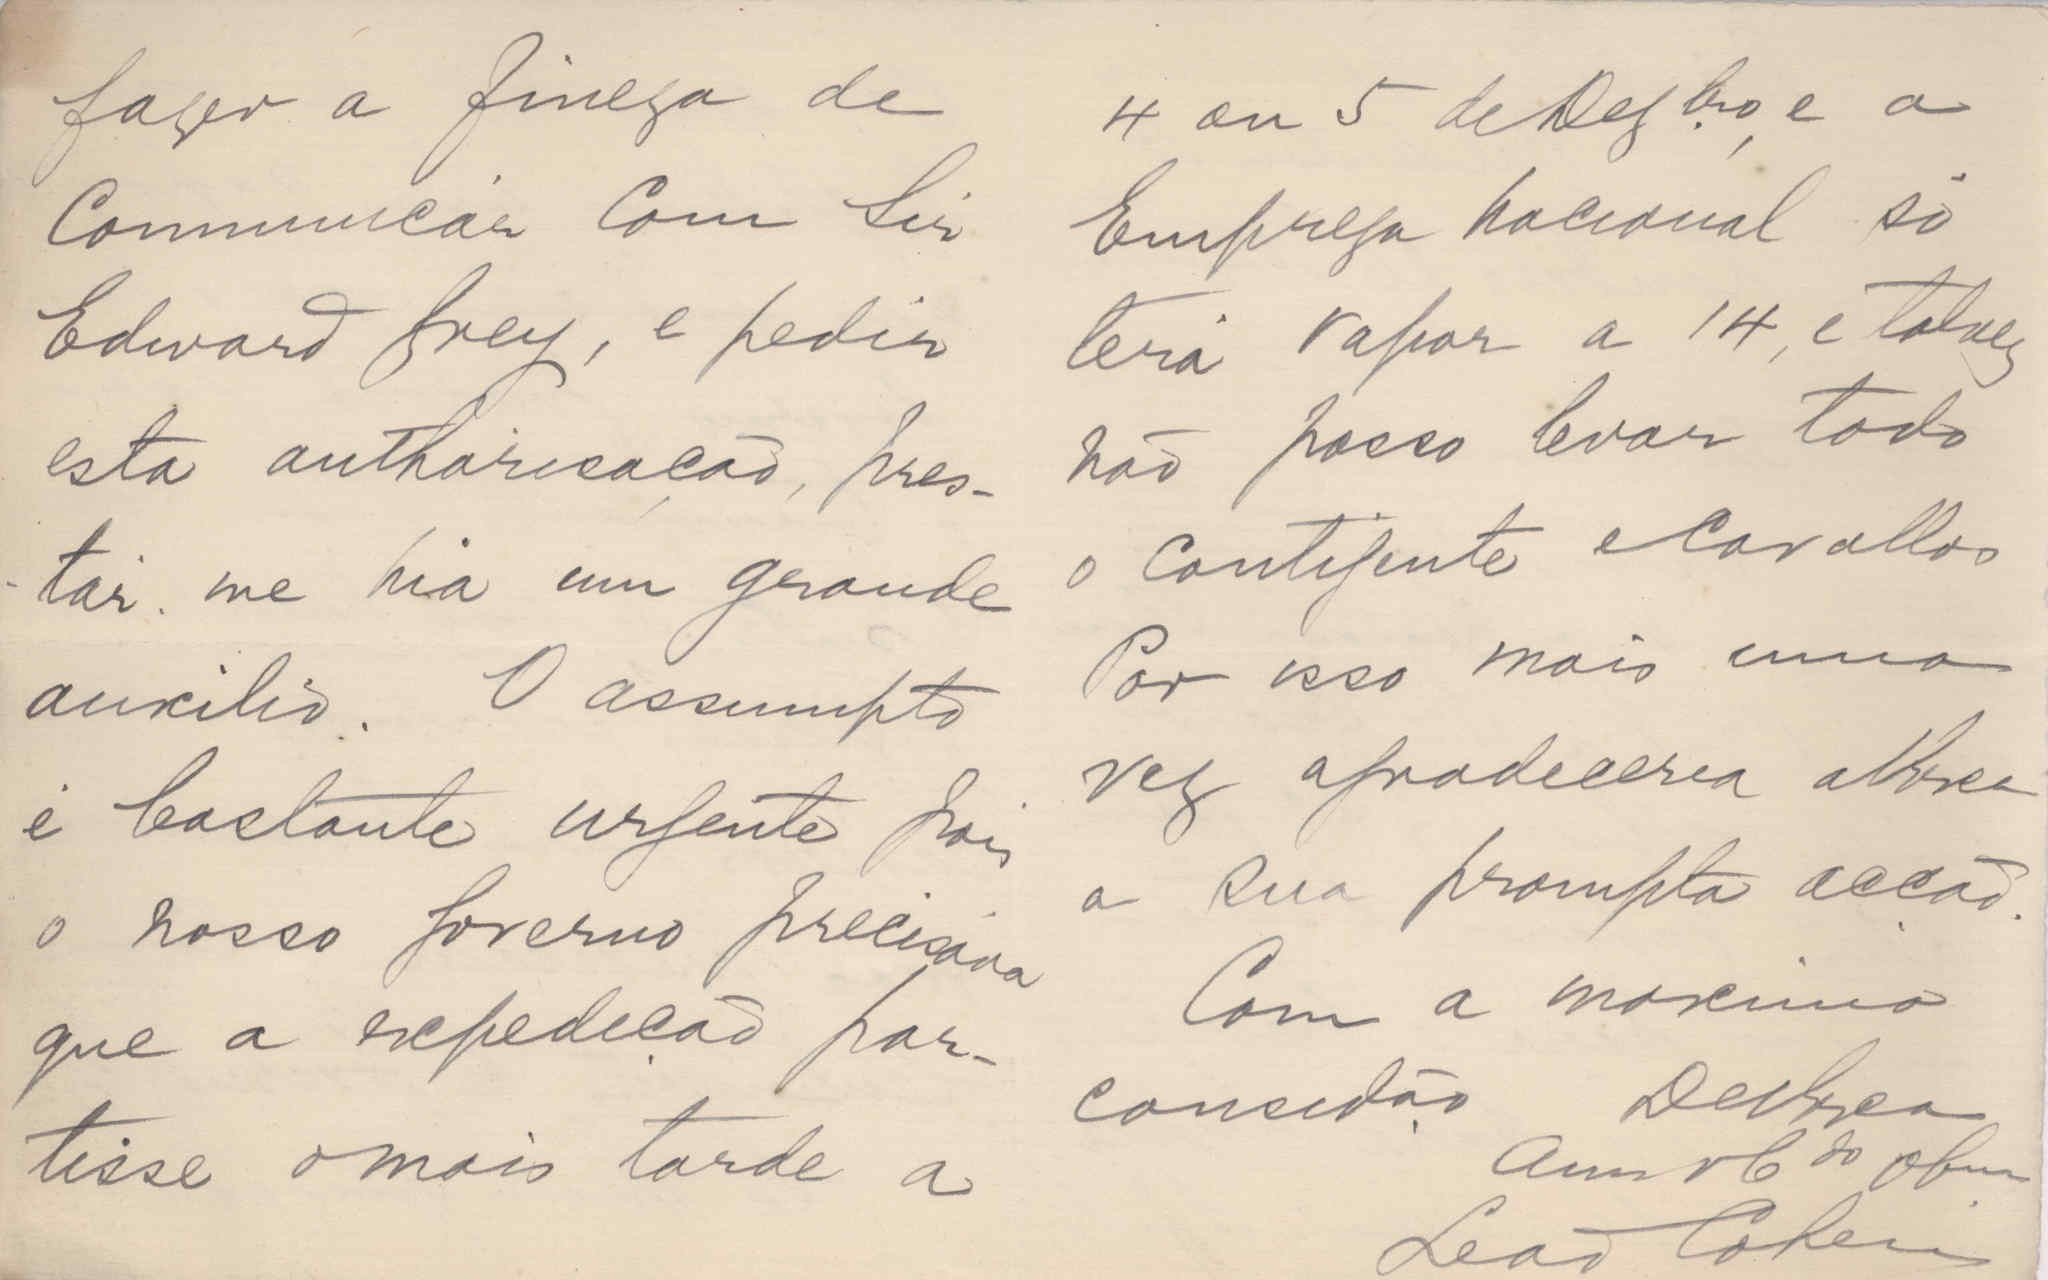 fazer a fineza de
Communicar com Sir
Edward Grey, e pedir
esta authorisação, pres-
tar me hia um grande
auxilio. O assumpto
é bastante urgente pois
o nosso Governo precisava
que a expedição par-
tisse o mais tarde a
4 ou 5 de Dezbro, e a
Empreza Nacional só
terá vapor a 14, e talvez
não possa levar todo
o contigente e cavallos
Por isso mais uma
vez agradeceria a
a sua prompta acção.
Com a maxima
consedão De
Leão Cohen